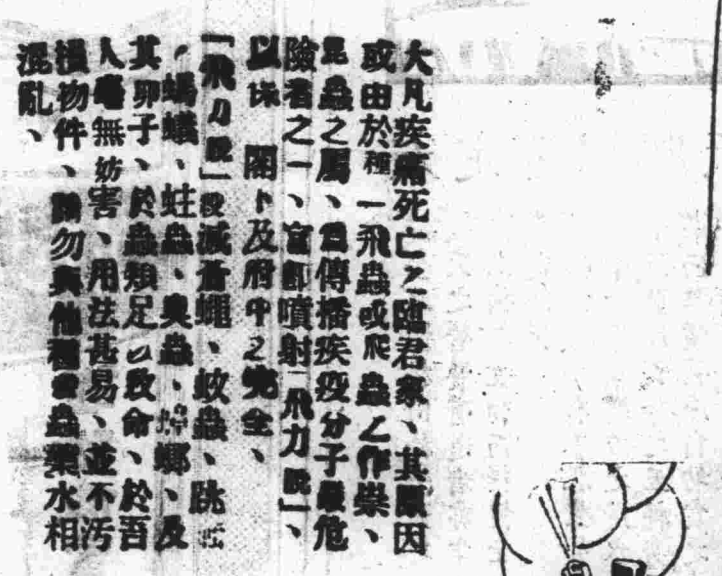 大凡疾病死亡之臨君家、其原因
或由於種一飛蟲或爬蟲之作祟、
昆蟲之屬、爲傳播疾疫分子最危
險者之一、宜卽噴射「飛力脫」、
以保 閤卜及府中之完全、
「飛力脫」殺滅蒼蠅、蚊蟲、跳
、螞蟻、蛀蟲、臭蟲、蟑螂、及
其卵子、於蟲類足以致命、於吾
人毫無妨害、用法甚易、並不污
損物件、請勿與他種會蟲藥水相
混亂、